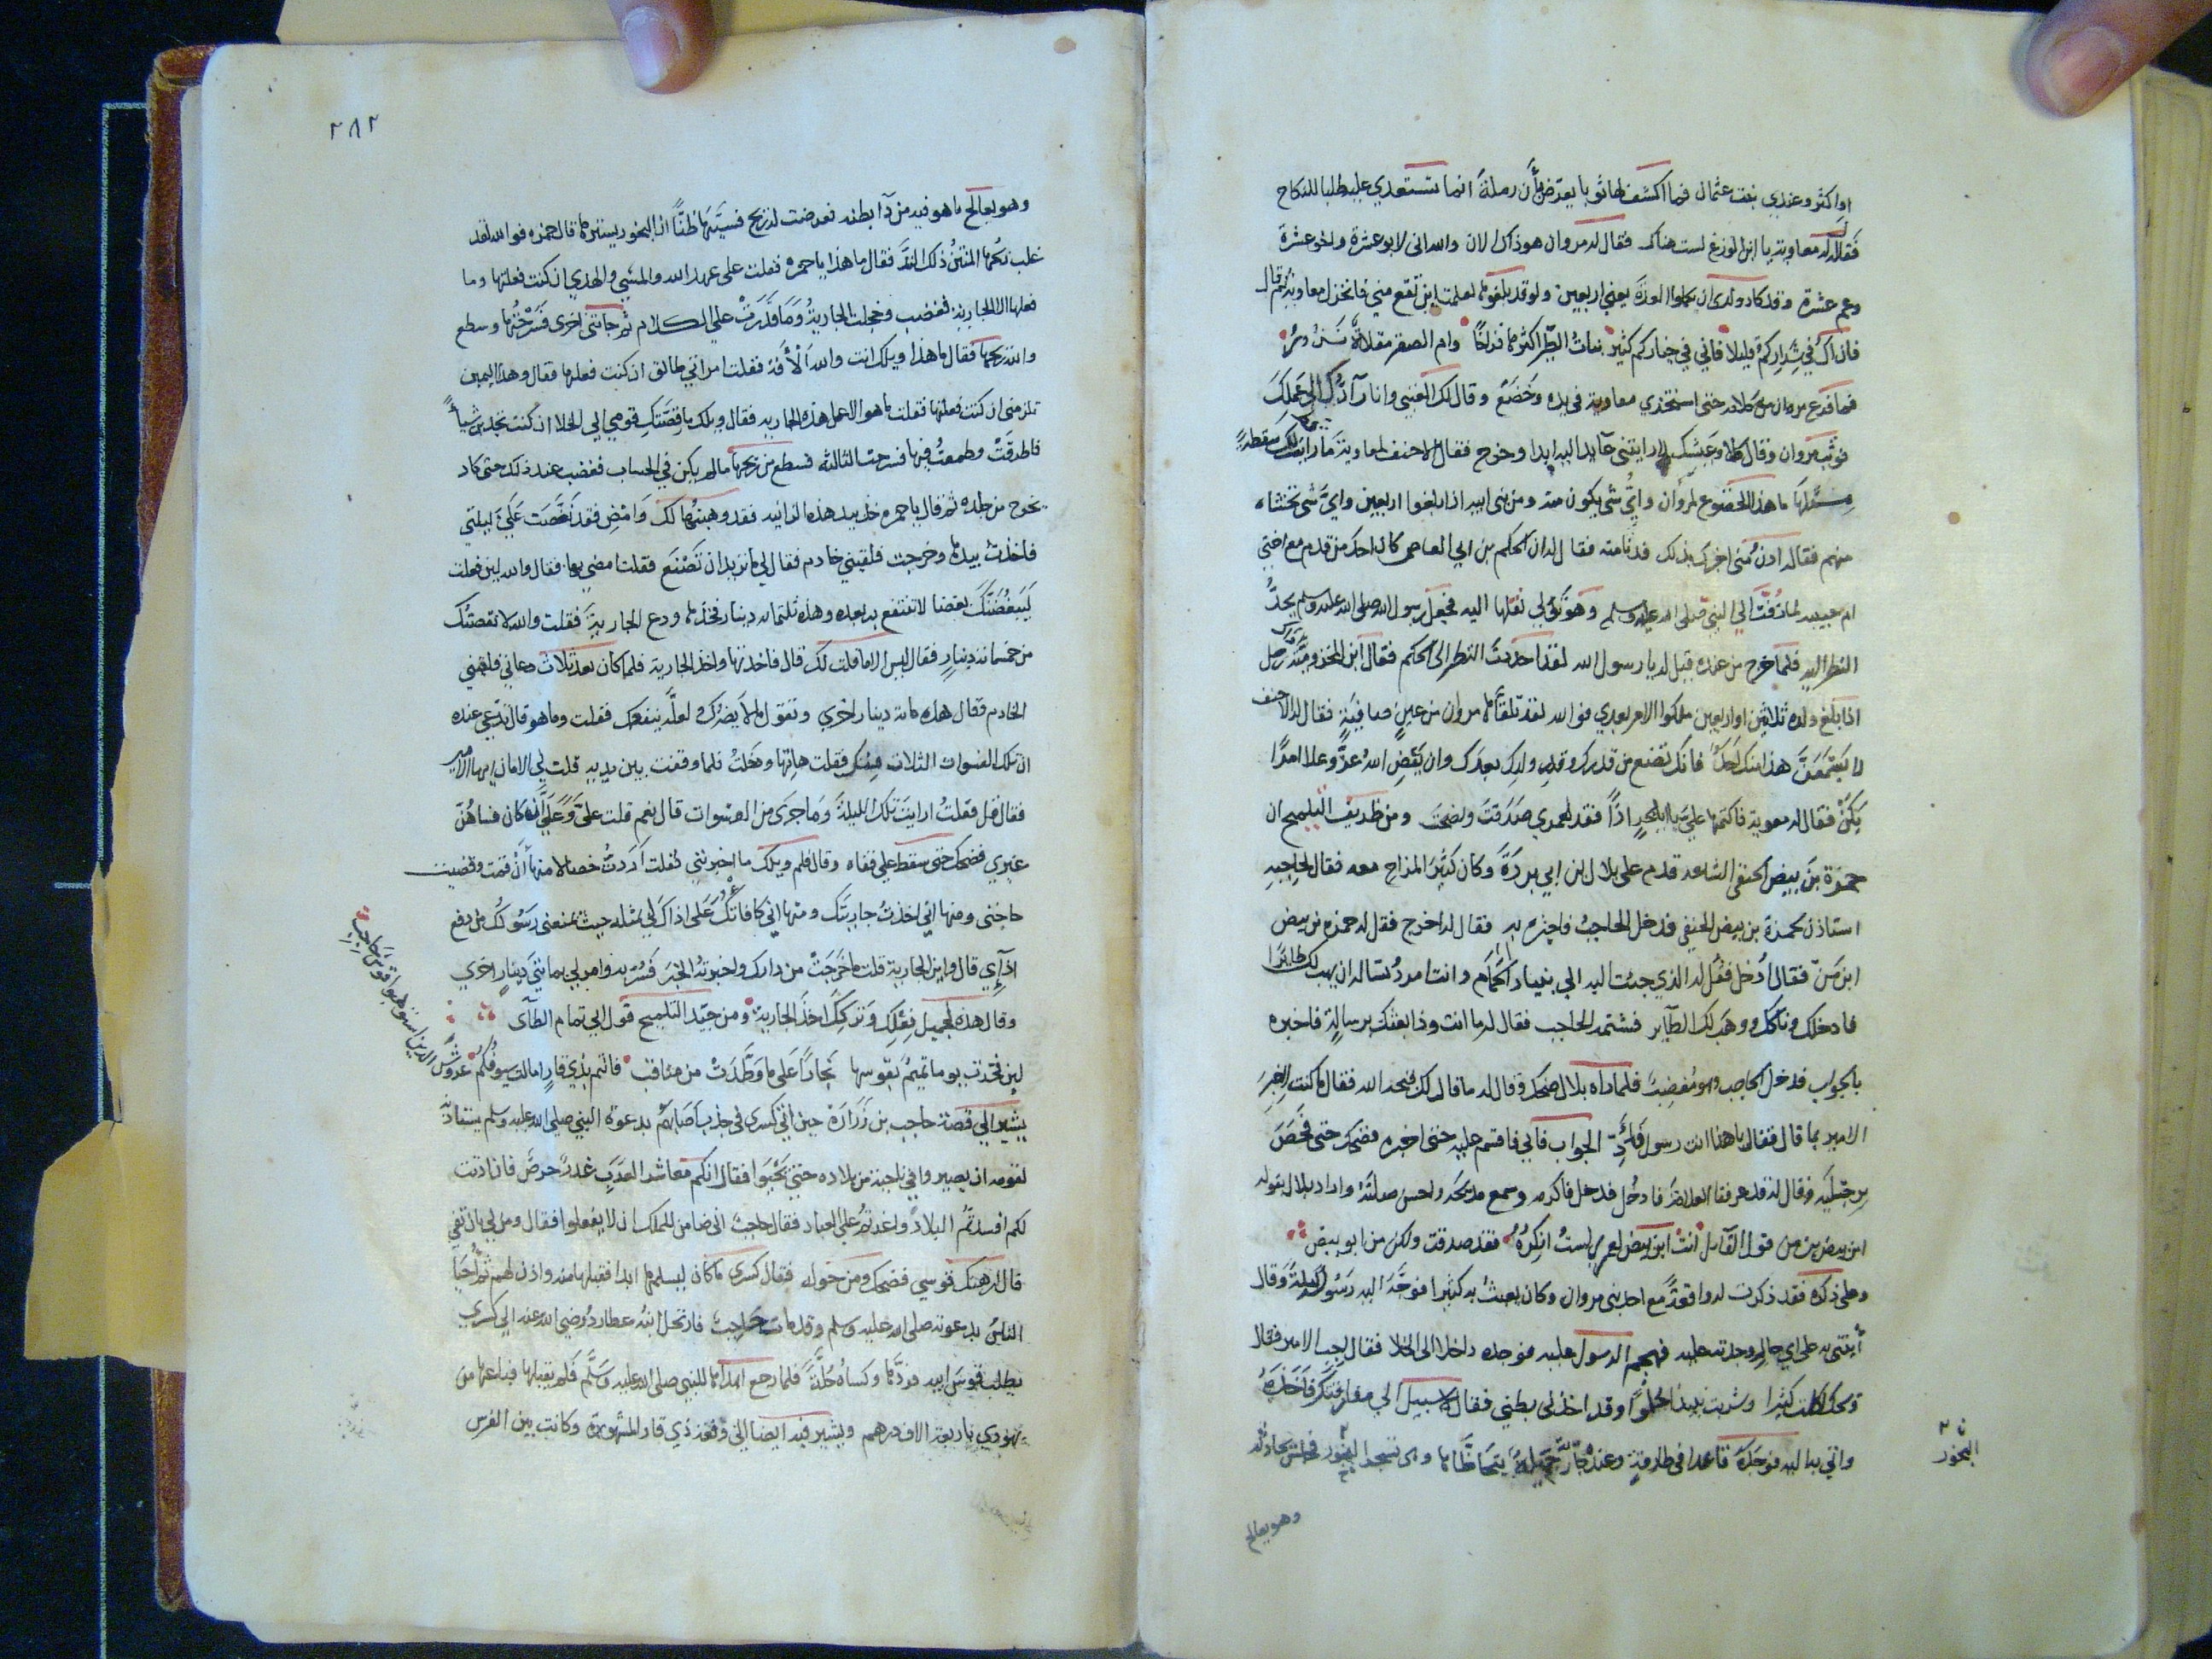 او اكثر وعندي بنت عثمان فما اكشف لها ثوبا يعرّض بأن رملة انما تستعدي عليه طلبا للنكاح
فقال له معاوية يا ابن الوزغ لست هناك فقال له مروان هو ذاك الان والله اني لابو عشرة واخو عشرة
وعم عشرة وقد كاد ولدي ان يكملوا العدة يعني اربعين ولو قد بلغوها لعلمت اين تقع مني فانخزل معاوية ثم قال
فان اك في شراركم قليلا فاني في خياركم كثير بغاث الطير اكثرها فراخا وام الصقر مقلاة نزور
فما فرغ مروان من كلامه حتى استخذي معاوية في يده وخضع وقال لك العتبى وانا رآدّك الى عملك
فوثب مروان وقال كلا وعيشك لا رايتني عآيدا اليه ابدا وخرج فقال الاحنف لمعاوية ما رايت لك سقطة
مثلها ما هذا الخضوع لمروان واي شي يكون منه ومن بني ابيه اذا بلغوا اربعين واي شي تخشاه
منهم فقال له ادن مني اخبرك بذلك فدنا منه فقال له ان الحكم بن ابي العاص كان احد من قدم مع اختي
ام حبيبة لما زفت الى النبي صلى الله عليه وسلم وهو تولى نقلها اليه فجعل رسول الله صلى الله عليه وسلم يحدّ
النظر اليه فلما خرج من عنده قيل له يا رسول الله لقد احددت النظر الى الحكم فقال ابن المخزومية رجل
اذا بلغ ولده ثلاثين او اربعين ملكوا الامر بعدي فو الله لقد تلقاها مروان من عين صافية فقال له الاحنف
لا يسمعنّ هذا منك احد فانك تضع من قدرك وقدر ولدك بعدك وان يقض الله عز وعلا امرا
يكن فقال له معوية فاكتمها علي يا ابا بحر اذًا فقد لعمري صدقت ونصحت ومن ظريف التلميح ان
حمزة بن بيض الحنفي الشاعر قدم على بلال بن ابي بردة وكان كثير المزاح معه فقال لحاجبه
استاذن لحمزة بن بيض الحنفي فدخل الحاجب فاخبره به فقال له اخرج فقل له حمزة بن بيض
ابن من فقال ادخل فقل له الذي جئت اليه الى بنيار الحمام وانت امرد تساله ان يهب لك طائرا
فادخلك وناكك ووهب لك الطآير فشتمه الحاجب فقال له ما انت وذا بعثك برسالة فاخبره
بالجواب فدخل الحاجب وهو مغضب فلما رآه بلال ضحك وقال له ما قال لك قبحه الله فقال ما كنت لاخبر
الامير بما قال فقال يا هذا انت رسول فأدّ الجواب فابى فاقسم عليه حتى اخبره فضحك حتى فحص
برجليه وقال له قد عرفنا العلامة فادخل فدخل فاكرمه وسمع مديحه واحسن صلته واراد بلال بقوله
ابن بيض بن من قول القآيل انت ابن بيض لعمري لست انكره فقد صدقت ولكن من ابو بيض
وعلى ذكره فقد ذكرت له واقعة مع احد بني مروان وكان يعبث به كثيرا فوجّه اليه رسولا ليلة وقال
أيتني به على اي حال وجدته عليه فهجم الرسول عليه فوجده داخلا الى الخلا فقال اجب الامير فقال
ويحك اكلت كثيرا وشربت نبيذا حلوا وقد اخذني بطني فقال لا سبيل الى مفارقتك فاخذه
واتي به اليه فوجده قاعدا في طارمة وعنده جارية جميلة يتحظاها وهي تسجر البخور فجلس يحادثه
البخور
وهو يعالج
٢٨٢
وهو يعالج ما هو فيه من دآ بطنه فعرضت له ريح فسيّبها ظنًّا ان البخور يسترها قال حمزة فوالله لقد
غلب ريحها المنتن ذلك الندّ فقال ما هذا يا حمزة فقلت على عهد الله والمشي والهدي ان كنت فعلتها وما
فعلها الا الجارية فغضب وخجلت الجارية وما قدرت على الكلام ثم جاتني اخرى فسرحتها وسطع
والله ريحها فقال ما هذا ويلك انت والله الآفة فقلت امراتي طالق ان كنت فعلتها فقال وهذه اليمين
تلزمني ان كنت فعلتها فقلت ما هو الا عمل هذه الجاريه فقال ويلك ما قصتك قومي الى الخلا ان كنت تجدين شيأً
فاطرقت وطمعت فيها فسرحت الثالثه فسطع من ريحها ما لم يكن في الحساب فغضب عند ذلك حتى كاد
يخرج من جلده ثم قال يا حمزه خذ بيد هذه الزانيه فقد وهبتها لك وامض فقد نغصت عليّ ليلتي
فاخذت بيدها وخرجت فلقيني خادم فقال لي ما تريد ان تصنع فقلت امضي بها فقال والله لين فعلت
ليبغضنّك بغضا لا تنتفع به بعده وهذه ثلثماية دينار فخذها ودع الجارية فقلت والله لا نقصتك
من خمسماية دينار فقال ليس الا ما قلت لك قال فاخذتها واخذ الجارية فلما كان بعد ثلاث دعاني فلقيني
الخادم فقال هذه ماية دينار اخرى وتقول ما لا يضرك ولعله ينفعك فقلت وما هو قال تدعي عنده
ان تلك الفسوات الثلاث منك فقلت هاتها ودخلت فلما وقفت بين يديه قلت لي الامان ايها الامير
فقال قل فقلت ارايت تلك الليلة وما جرى من الفسوات قال نعم قلت علي وعلي ان كان فساهن
غيري فضحك حتى سقط على قفاه وقال فلم ويلك ما اخبرتني فقلت اردت خصالا منها أن قمت وقضيت
حاجتي ومنها اني اخذت جاريتك ومنها اني كافاتك على اذاك لي بمثله حيث منعني رسولك من دفع
اذآي قال واين الجارية قلت ما خرجت من دارك واخبرته الخبر فسرّ به وامر لي بمايتي دينار اخرى
وقال هذه لجميل فعلك وتركك اخذ الجارية ومن جيّد التلميح قول ابي تمام الطآى
لين فخرت يوما تميم بقوسها فخارا على ما وطدت من مناقب فانتم بذي قار امالت سيوفكم عروش الذين استرهنوا قوس حاجب
يشير الى قصة حاجب بن زرارة حين اتى كسرى في جدب اصابهم بدعوة النبي صلى الله عليه وسلم يستاذنه
لقومه ان يصيروا في ناحية من بلاده حتى يحيوا فقال انكم معاشر العرب غدر حرص فان اذنت
لكم افسدتم البلاد واغرتم على العباد فقال حاجب اني ضامن للملك ان لا يفعلوا فقال ومن لي بان تفي
قال ارهنك قوسي فضحك ومن حوله فقال كسرى ما كان ليسلمها ابدا فقبلها منه واذن لهم ثم احيا
الناس بدعوته صلى الله عليه وسلم وقد مات حاجب فارتحل ابنه عطارد رضي الله عنه الى كسرى
يطلب قوس ابيه فردّها وكساه حلّة فلما رجع اهداها للنبي صلى الله عليه وسلّم فلم يقبلها فباعها من
يهودي باربعة الاف درهم ويشير فيه ايضا الى وقعة ذي قار المشهورة وكانت بين الفرس